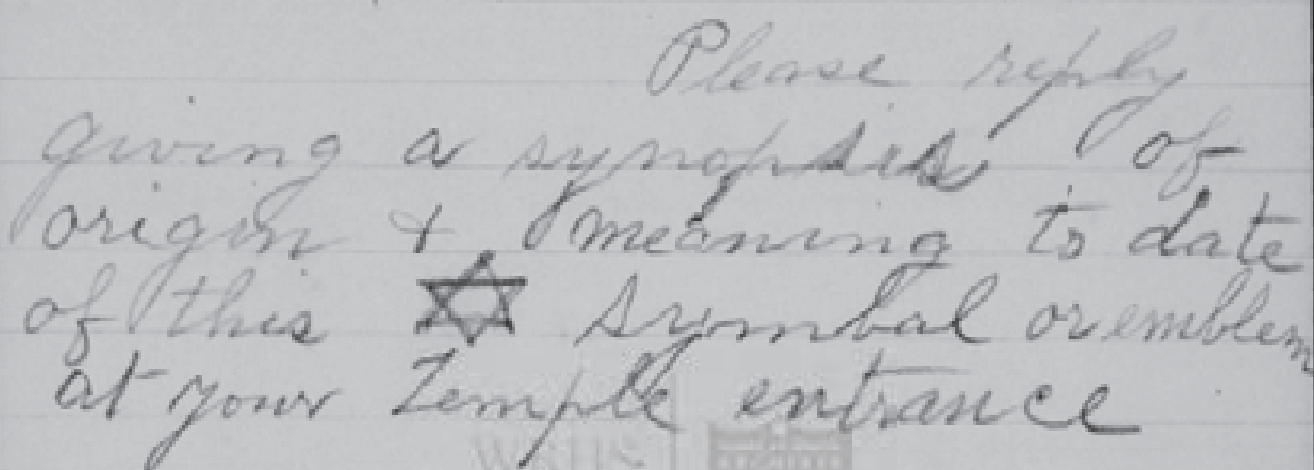 Please reply
giving a synopsis of
origin & meaning to date
of this ✡ symbol or emblem
at your Temple entrance